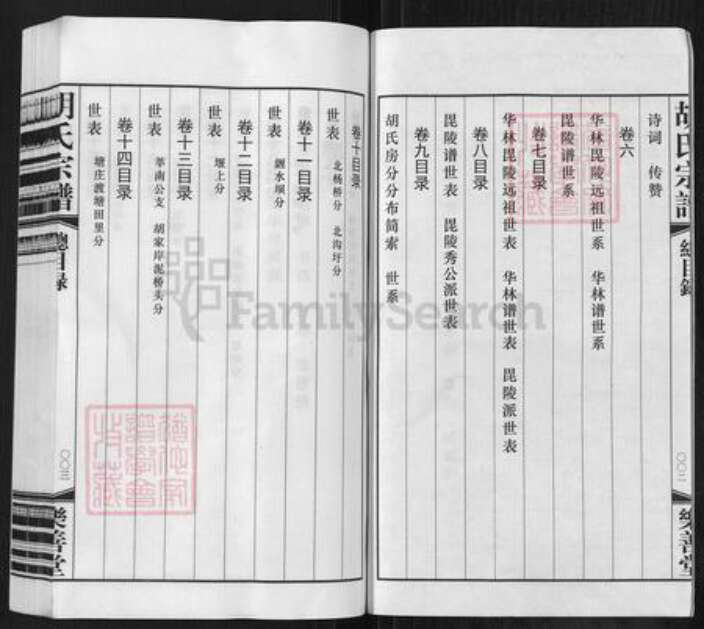 胡氏宗譜
總目錄
〇〇二
樂善堂
诗词 传赞
卷六
华林毘陵远祖世系 华林谱世系
毘陵谱世系
卷七目录
华林毘陵远祖世表 华林谱世表 毘陵派世表
卷八目录
毘陵谱世表 毘陵秀公派世表
卷九目录
胡氏房分分布简索 世系
卷十目录
世表 北杨桥分 北沟圩分
卷十一目录
世表 水坝分
卷十二目录
世表 堰上分
卷十三目录
世表 莘南公支 胡家岸泥桥头分
卷十四目录
世表 塘庄渡塘田里分
胡氏宗譜
總目録
〇〇三
樂善堂
FamilySearch